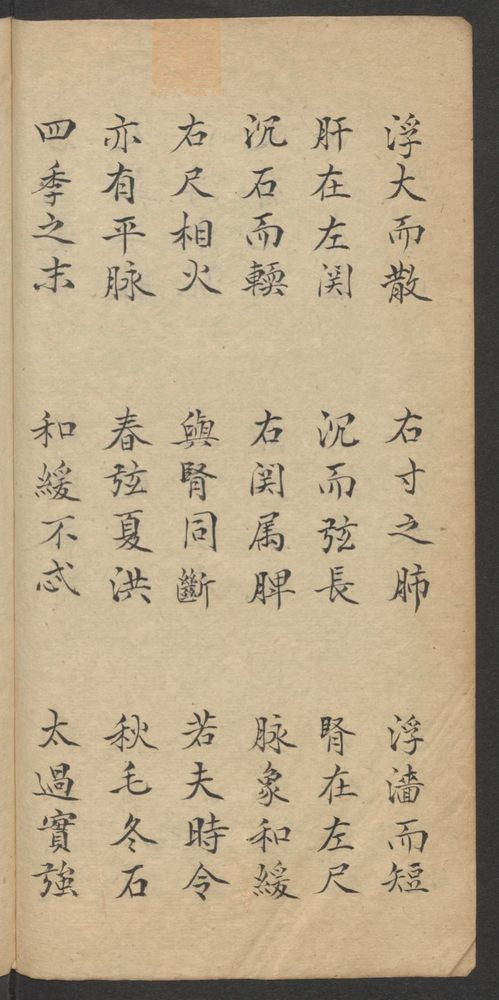 浮大而散　右寸之肺　浮濇而短
肝在左関　沉而弦長　腎在左尺
沉石而輭　右関属脾　脉象和緩
右尺相火　與腎同斷　若夫時令
亦有平脉　春弦夏洪　秋毛冬石
四季之末　和緩不忒　太過實強